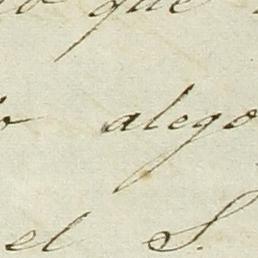 que
alego
el S.